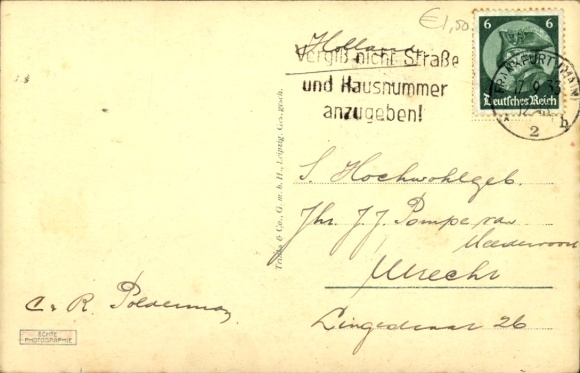 €1,50
Holland
Vergiß nicht Straße
und Hausnummer
anzugeben!
6 6
Deutsches Reich
FRANKFURT (MAIN)
17.9.33
2 h
S. Hochwohlgeb.
Jhr. J. J. Pompe van
Meerdervoort
Utrecht
Lingestraat 26
C. & R. Polderman
ECHTE
PHOTOGRAPHIE
& Co., G. m. b. H., Leipzig. Ges. gesch.